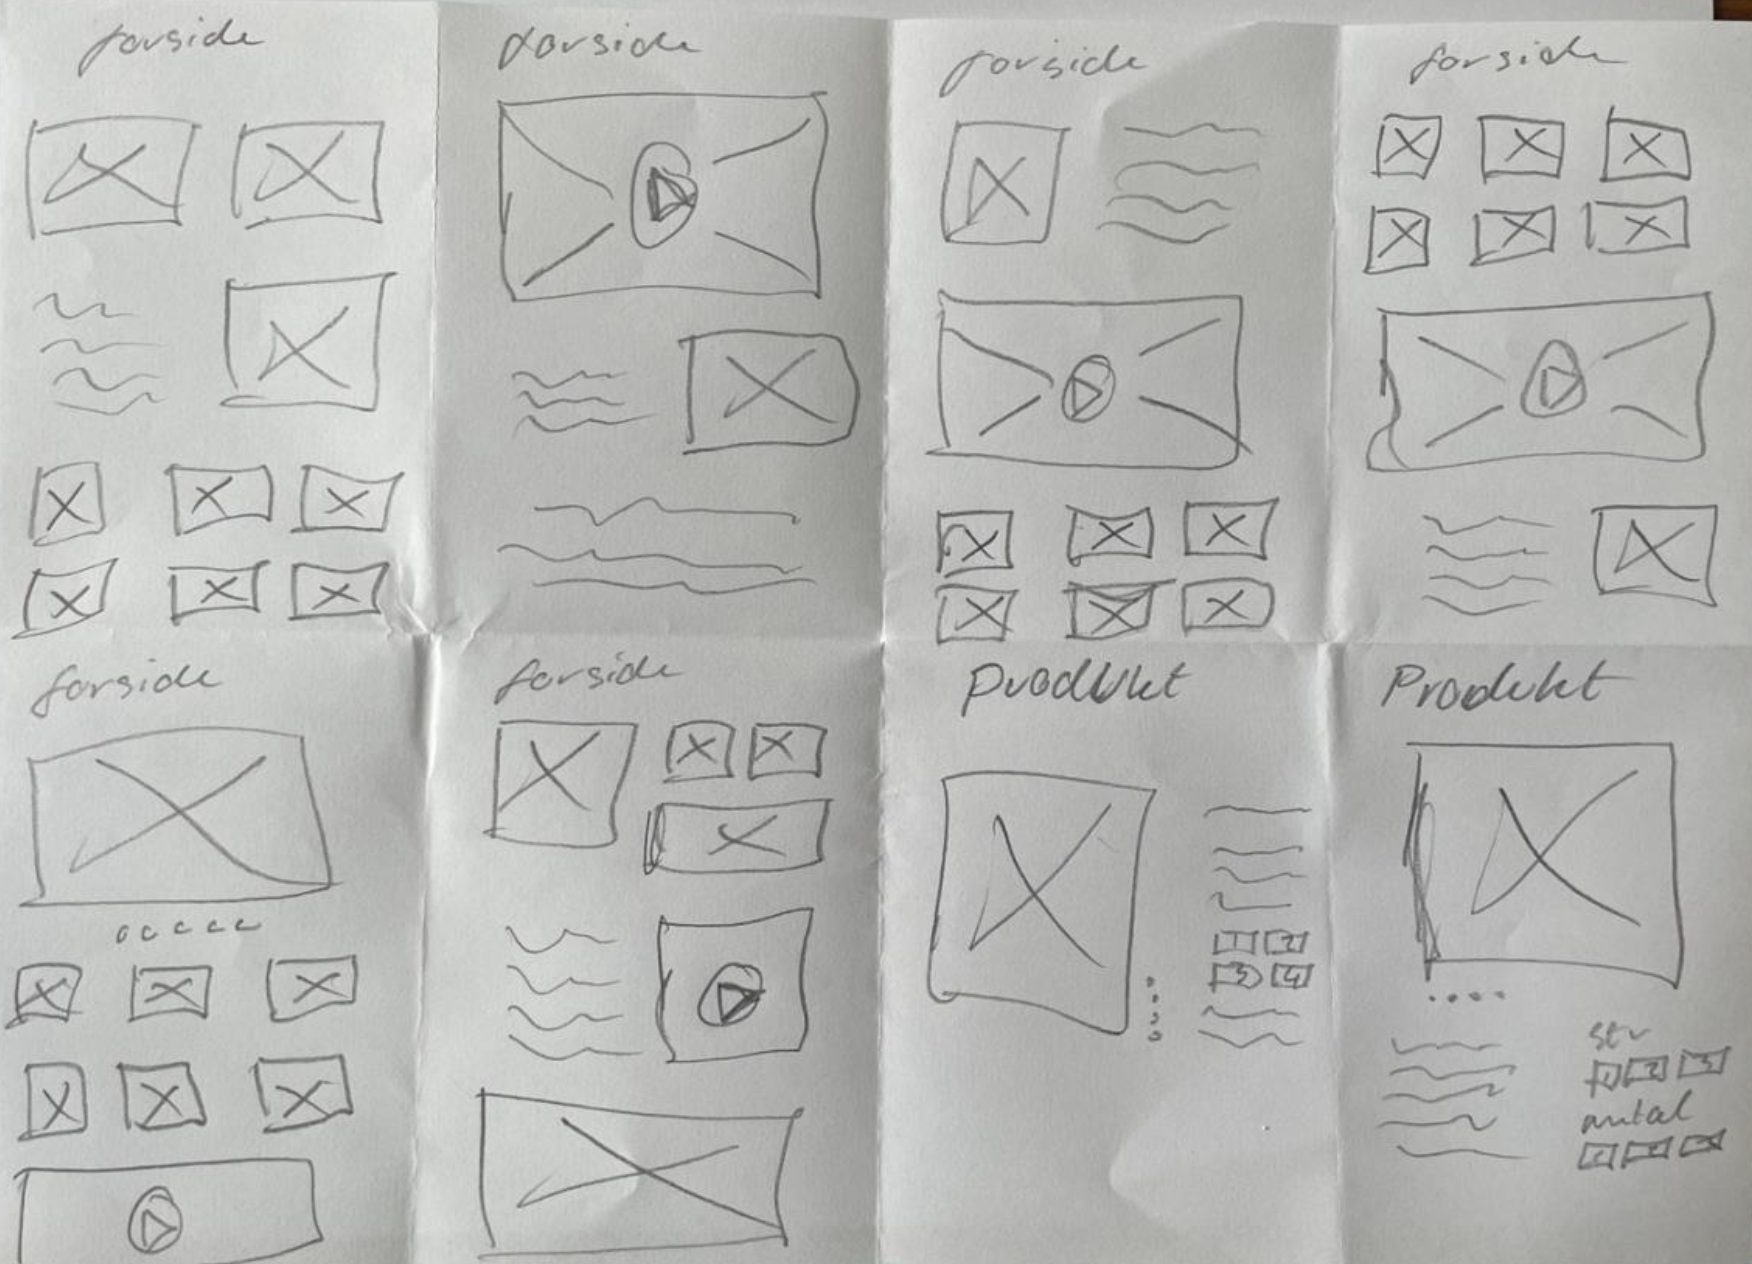 forside
forside
forside
forside
forside
forside
Produkt
Produkt
1 2
3 4
str
1 2 3
antal
1 2 3